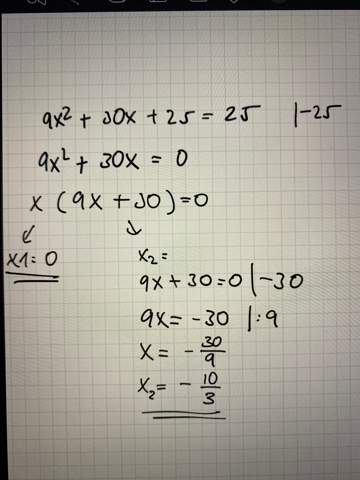 9x² + 30x + 25 = 25 |-25
9x² + 30x = 0
x (9x + 30) = 0
↙ ↘
x1 = 0
x₂ =
9x + 30 = 0 |-30
9x = -30 |:9
x = - 30/9
x₂ = - 10/3